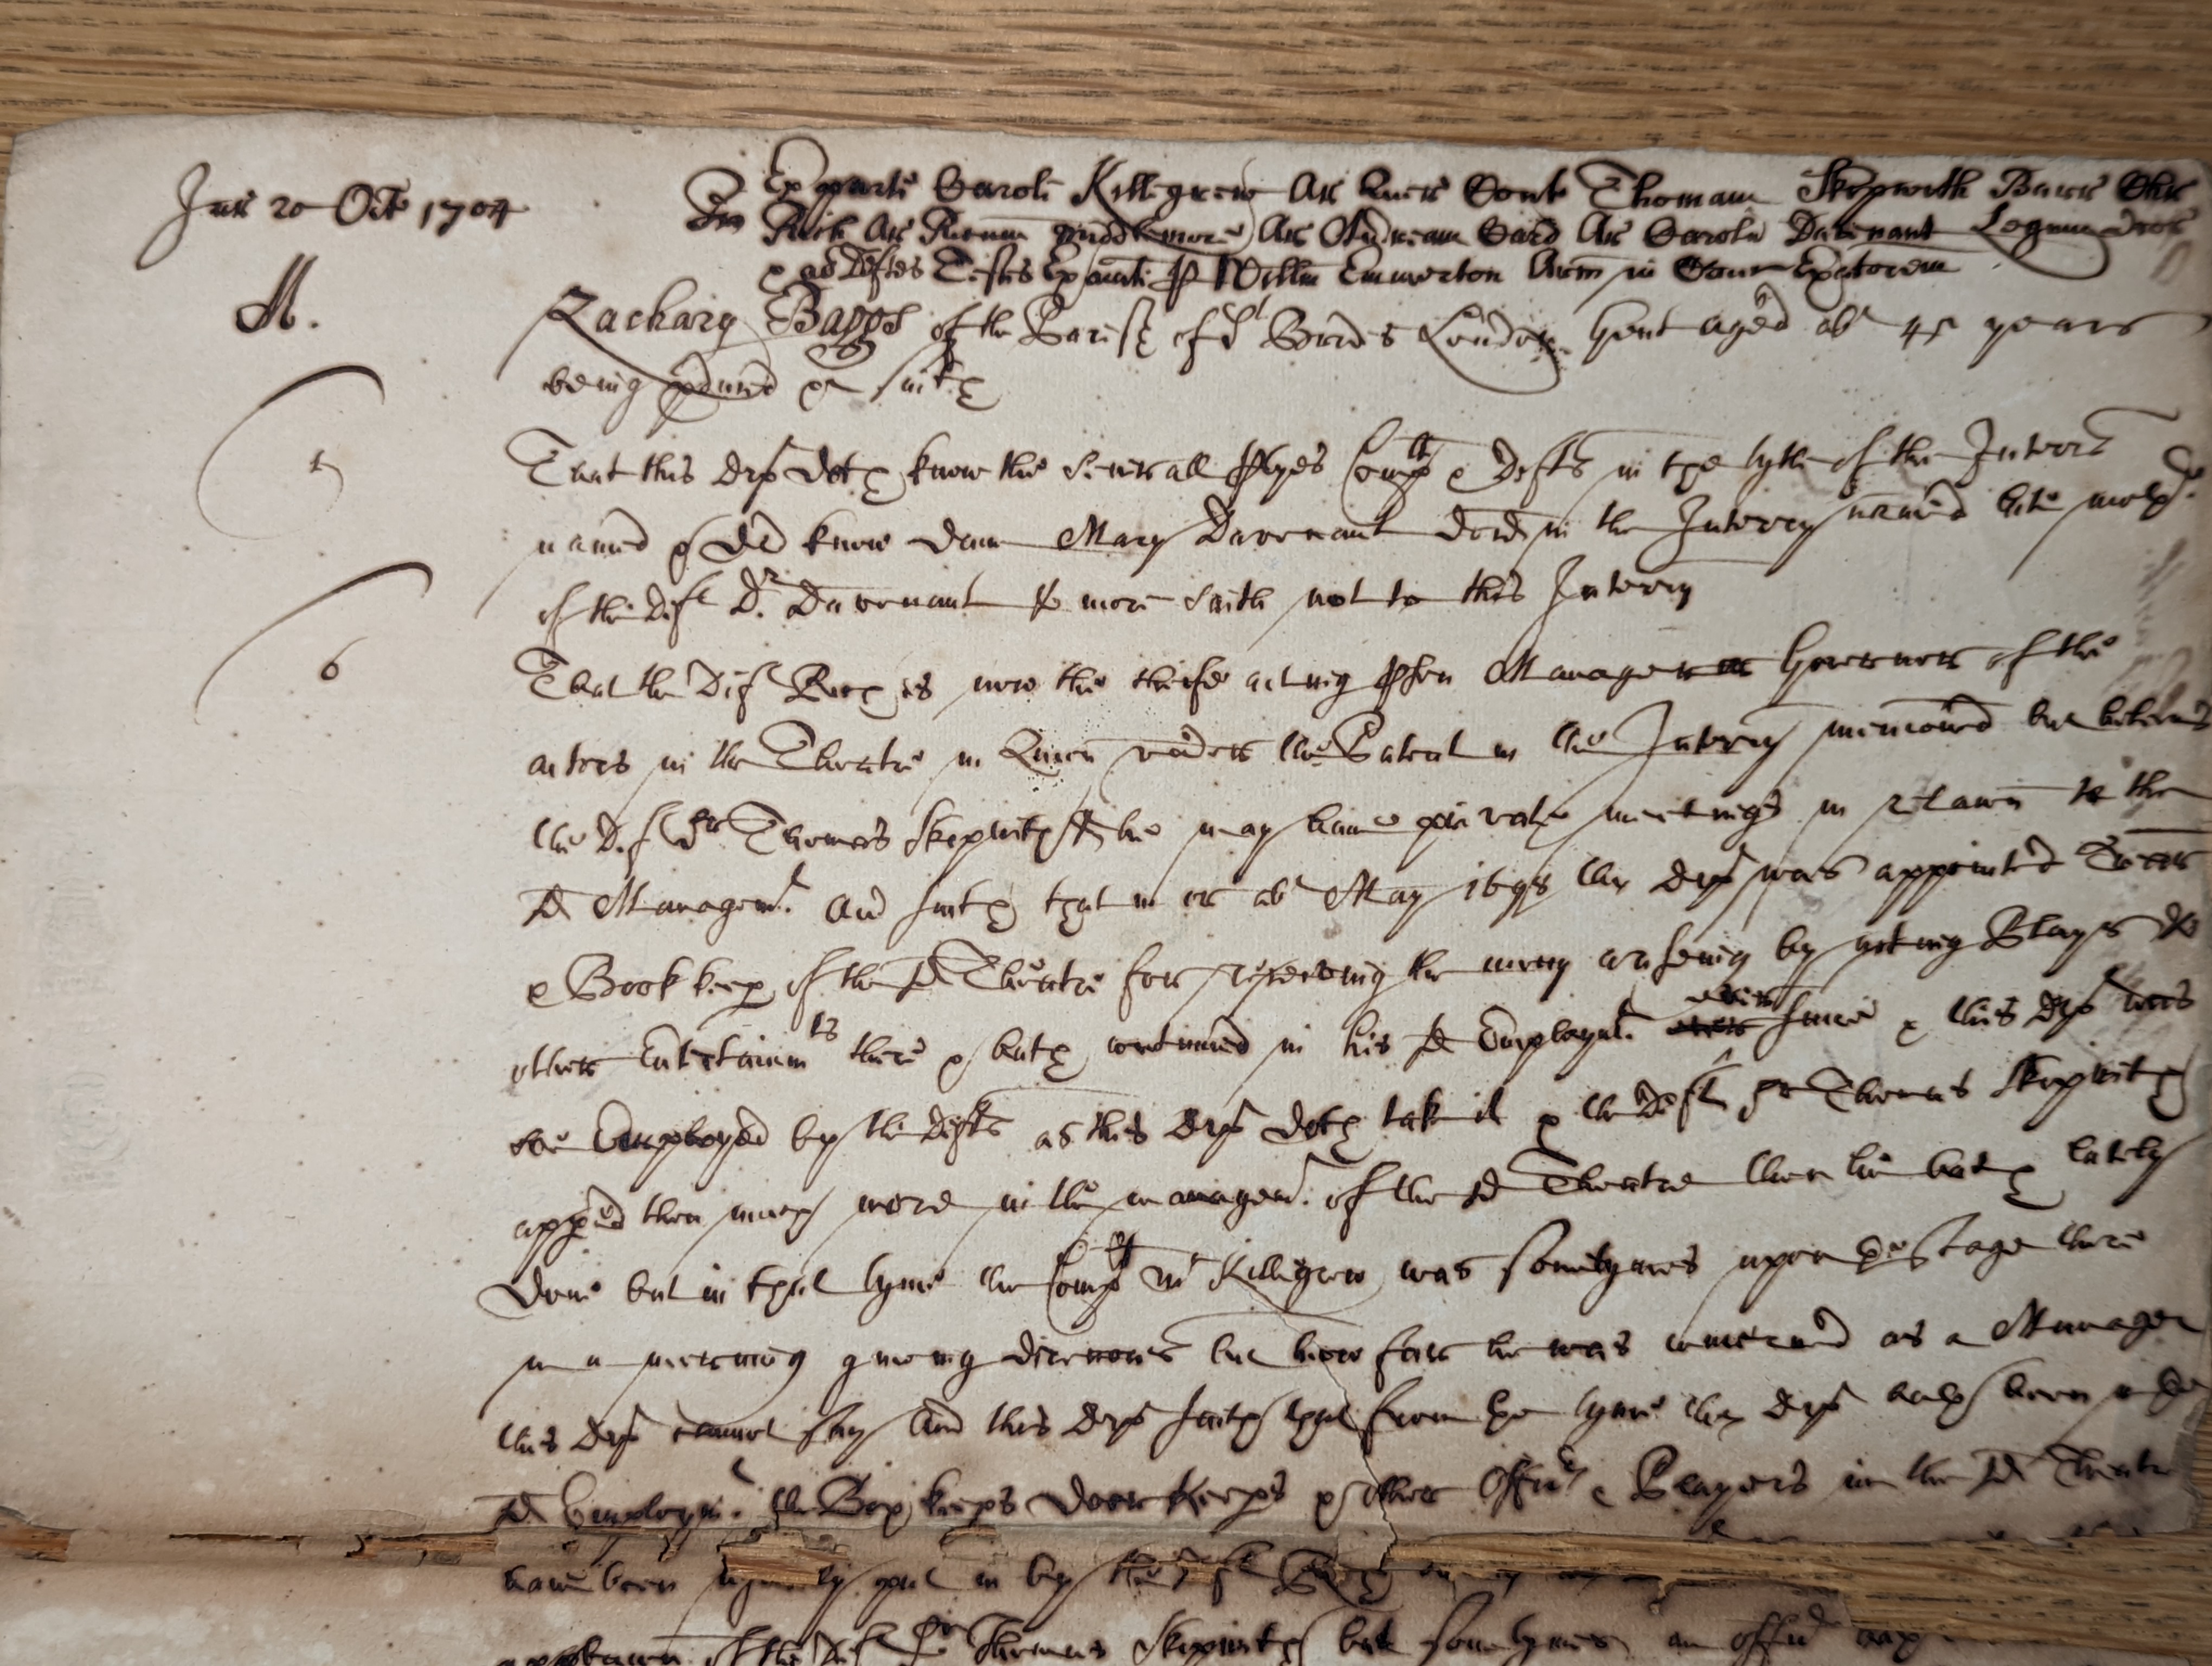 Jur 20 Oct 1704
Ex parte Caroli Killegrew Ar Quer Cont Thomam Skipwith Barr Chr
Rich Ar Middlemore Ar Andream Card Ar Carolu Davenant Legum Dcor
& al Deftes Testes Exaiati p Willm Emmerton Arm in Cour Exatorem
M.
Zachary Baggs of the Parish of St Brides London Gent aged abt 45 years
being pduced &c saith
1
That this Dept doth know the severall ptyes Complt & Defts in the tytle of the Interrs
named & did know Dame Mary Davenant decd in the Interry named late
of the Deft Dr. Davenant & more saith not to this Interry
6
That the Deft Rich is now the cheife acting pson Manager Governor of the
actors in the Theatre in Queen under the Patent in the Interry menconed but beleives
the Deft Sr Thomas Skipwith & he may have private meetings in relacon to the
sd Managemt. And saith that in or abt May 1698 this Dept was appointed
& Bookkeep of the sd Theatre for receiving the mony ariseing by acting Playes &
other Entertainmts there & hath continued in his sd Employmt. ever since & this Dept was
soe Employed by the Defts as this Dept doth take it & the Deft Sr Thomas Skipwith
appeed then much more in the managemt. of the sd Theatre then he hath lately
done but in that tyme the Complt Mr Killigrew was sometymes upon the Stage there
in a morning giveing direcons but how farr he was concerned as a Manager
this Dept cannot say And this Dept saith that from the tyme this Dept hath been in the
sd Employmt. the Box keeps Doorkeeps & other Officrs & Players in the sd Theatre
have been put in by the Deft Rich
of the Deft Sr Thomas Skipwith but sometymes an